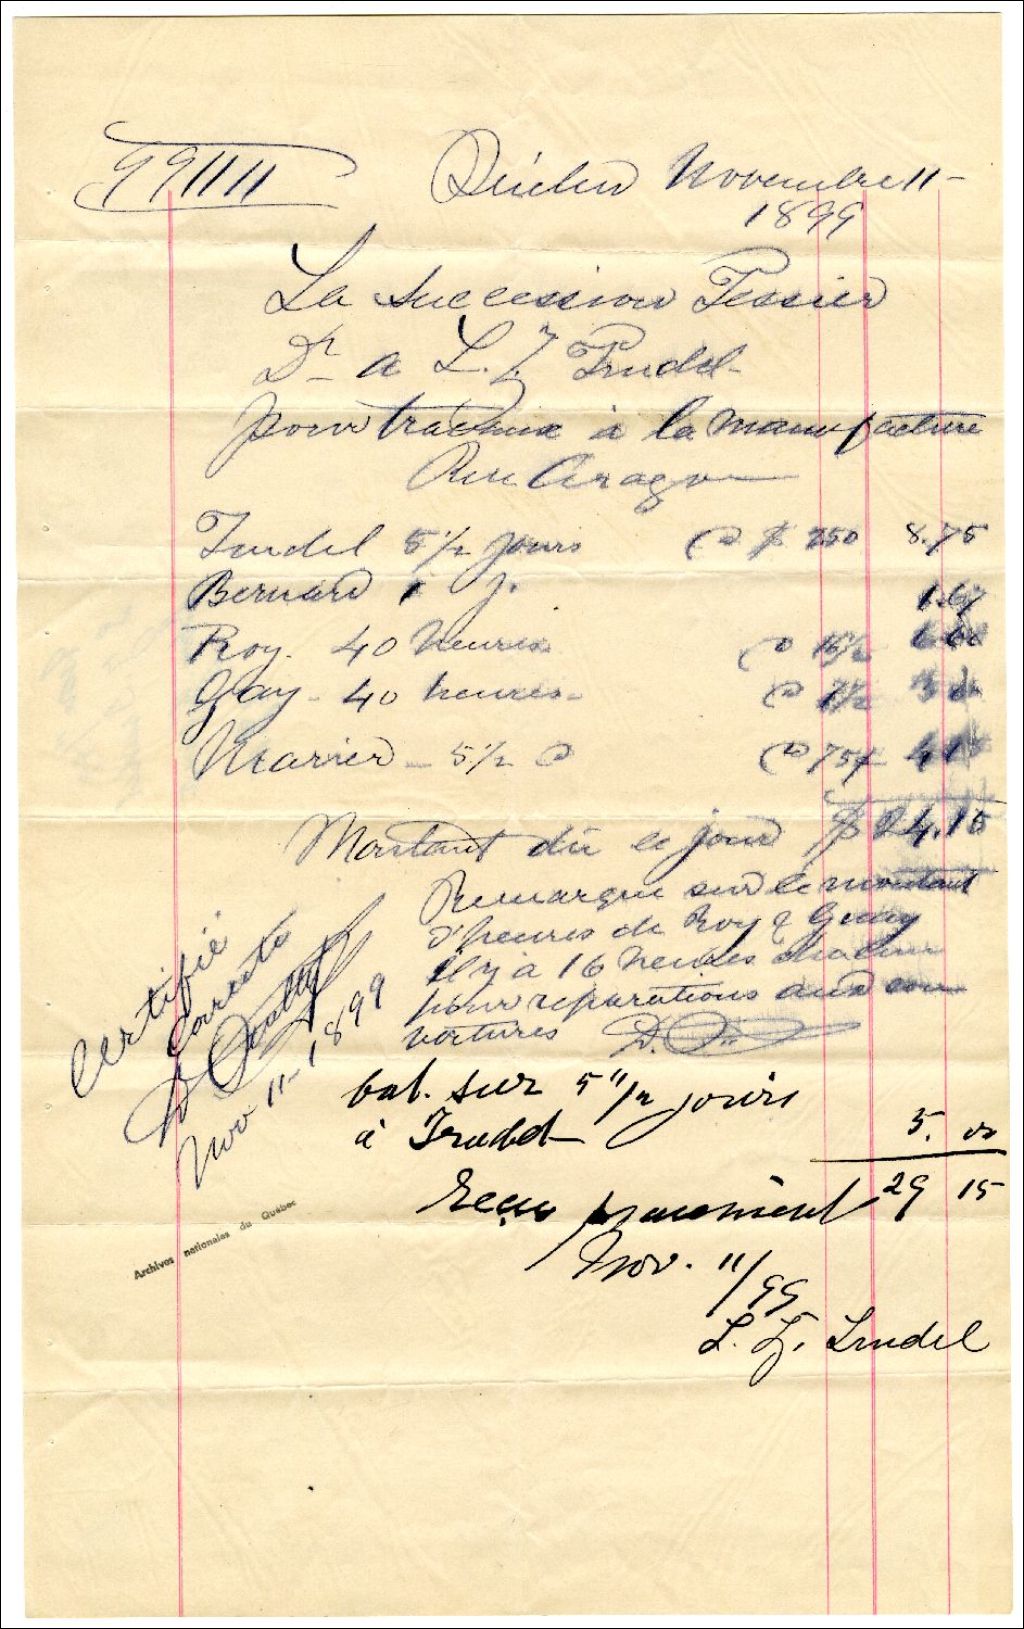 991111
Québec Novembre 11 -
1899
La Succession Tessier
Dr a L. Z Trudel
pour travaux à la manufacture
Rue Arago
Trudel 5 1/2 jours @ $ 8.75
Bernard 1 j. 1.67
Roy. 40 heures @ 16 1/2 6.60
Guay - 40 heures - @ 7 1/2
Marier - 5 1/2 @ 75¢
Montant dû ce jour $ 24.15
Remarque sur le montant
d'heures de Roy & Guay
il y a 16 heures chacun
pour reparations aux cou
vertures
Certifié
Correcte
Nov 11 - 1899
bal. sur 5 1/2 jours
à Trudel 5. 00
29 15
Reçu paiement
Nov. 11/99
L. Z. Trudel
Archives nationales du Québec